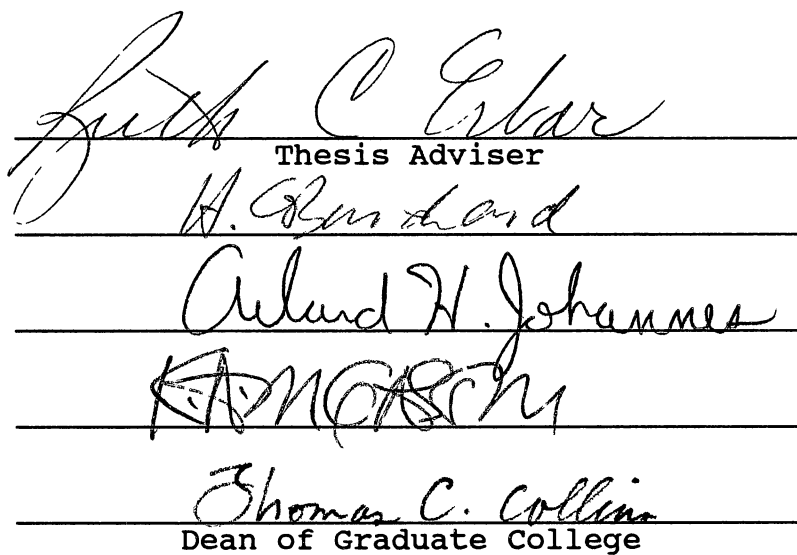 Ruth C Erbar
Thesis Adviser
H.
Arland H. Johannes
Thomas C. Collins
Dean of Graduate College